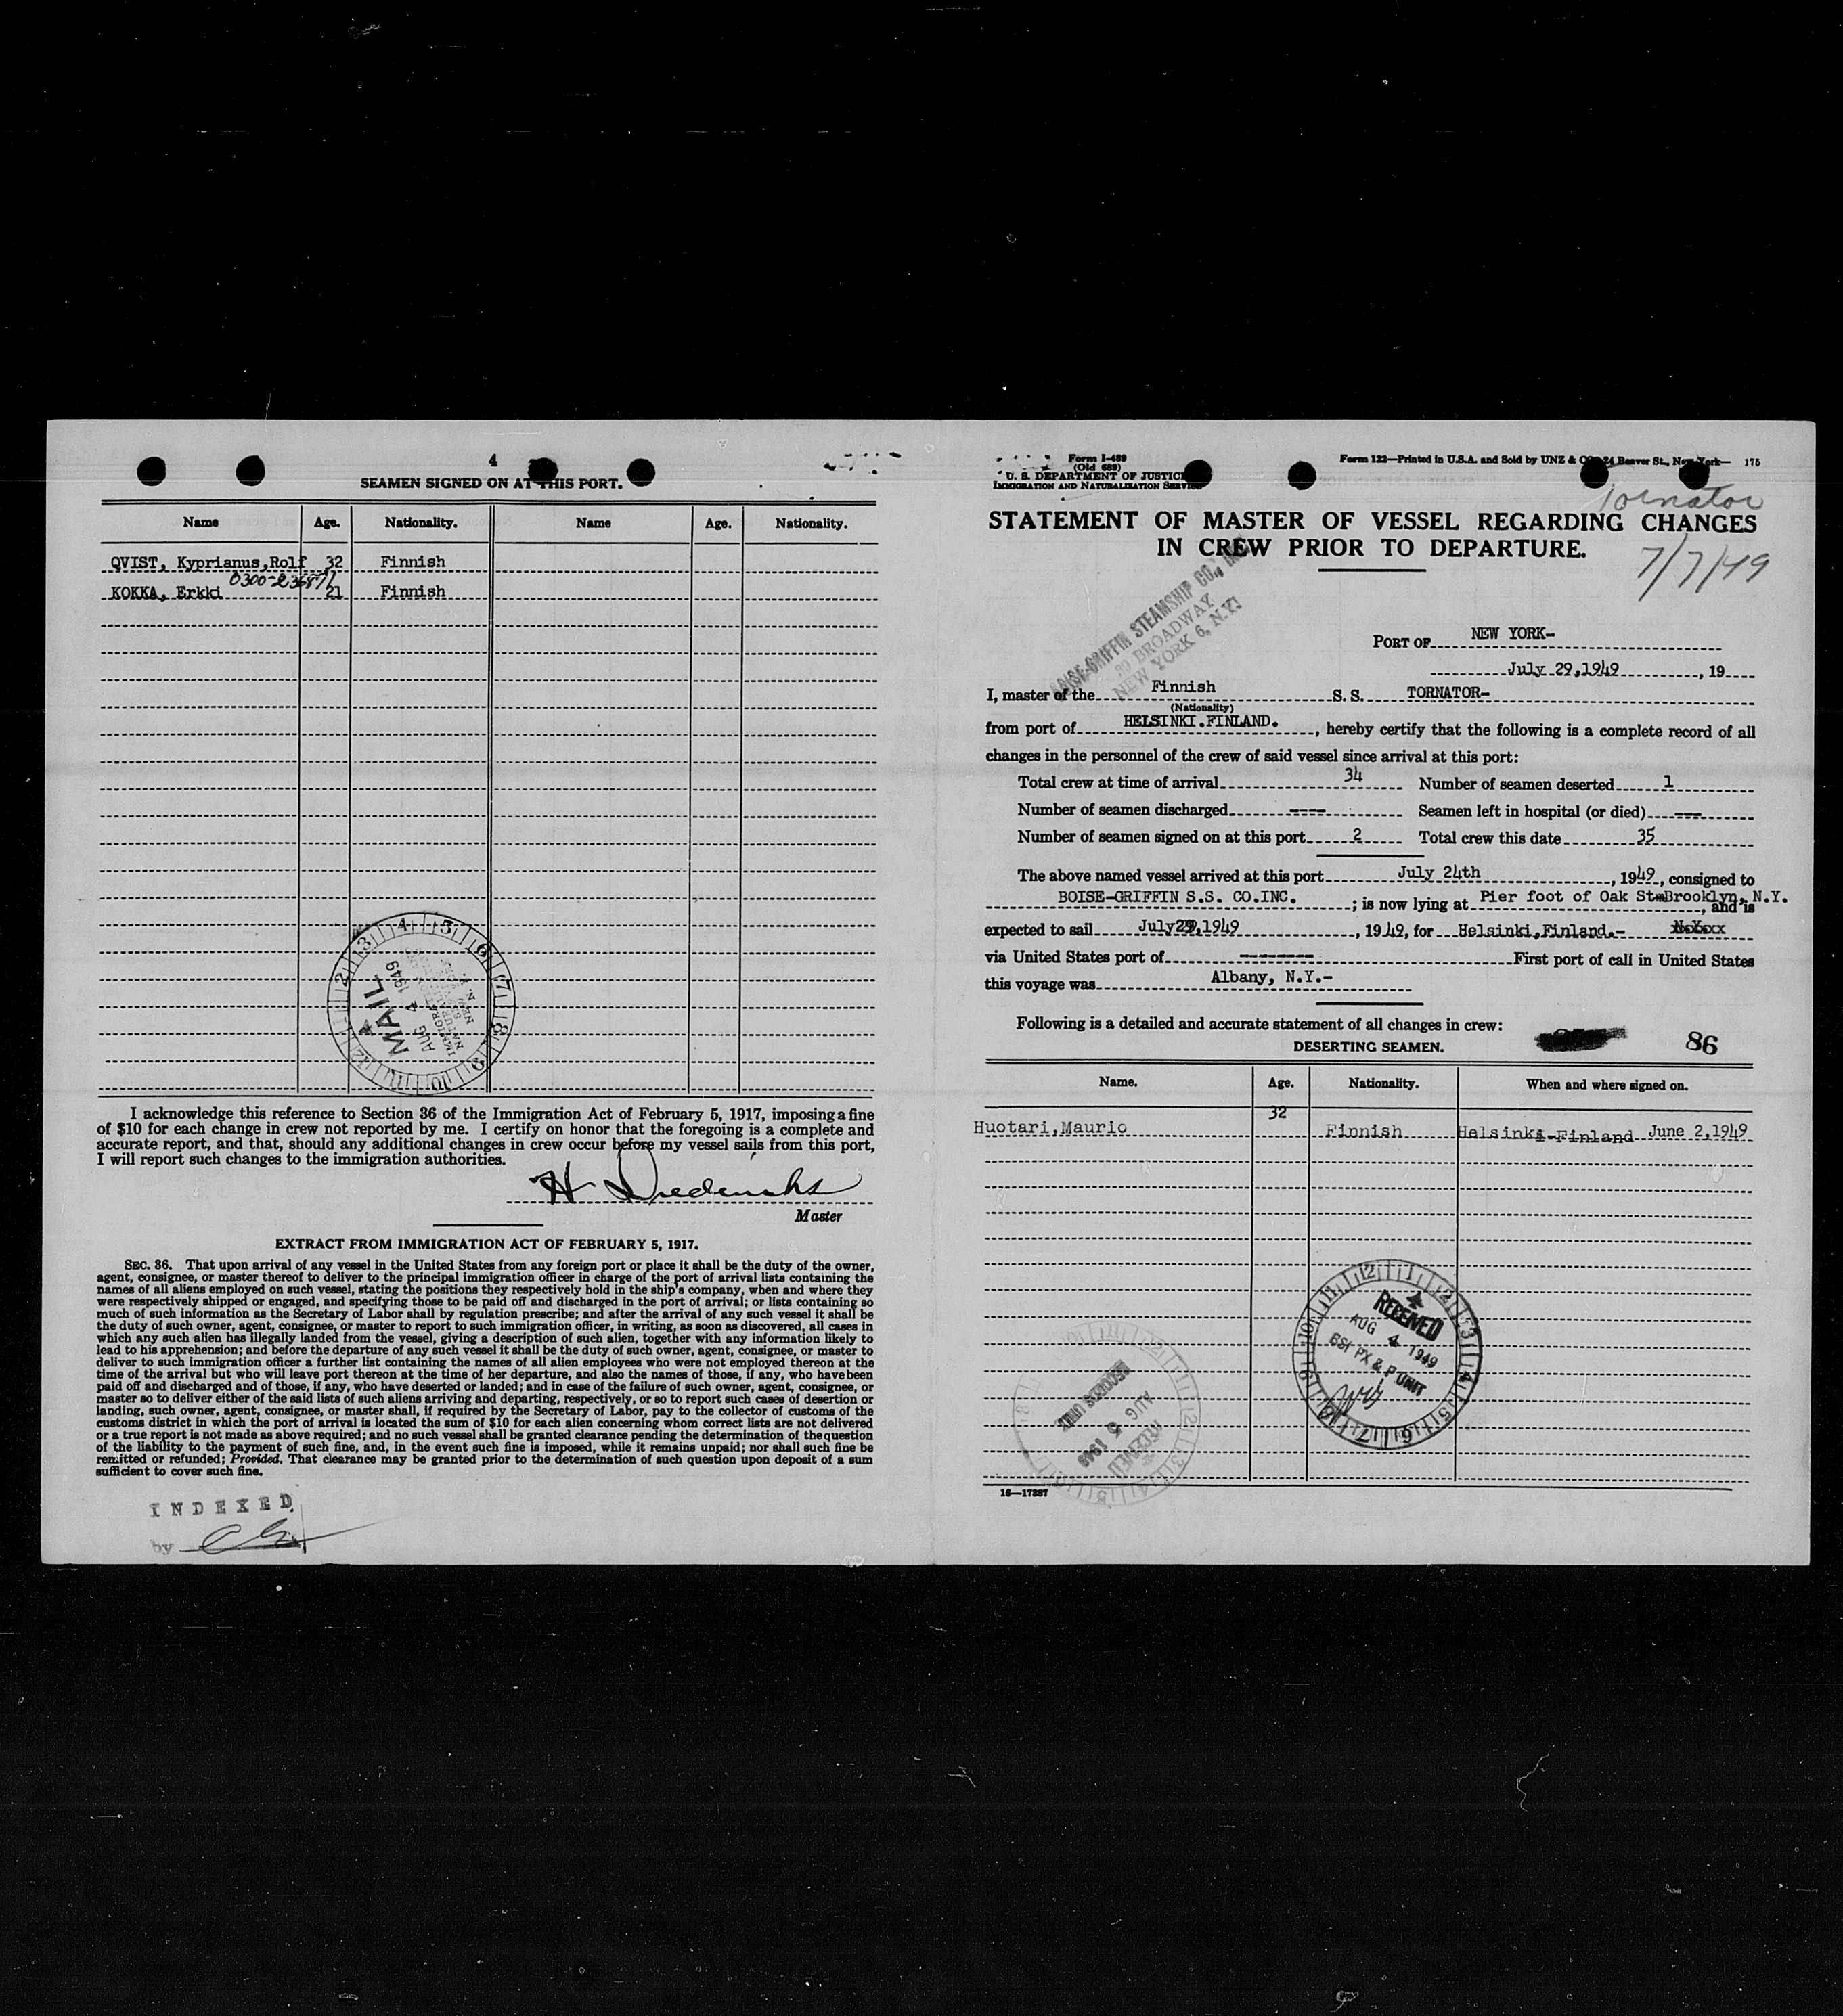 4
SEAMEN SIGNED ON AT THIS PORT.
Name Age. Nationality. Name Age. Nationality.
QVIST, Kyprianus,Rolf 32 Finnish
KOKKA, Erkki 21 Finnish
MAIL
AUG 4 1949
I acknowledge this reference to Section 36 of the Immigration Act of February 5, 1917, imposing a fine
of $10 for each change in crew not reported by me. I certify on honor that the foregoing is a complete and
accurate report, and that, should any additional changes in crew occur before my vessel sails from this port,
I will report such changes to the immigration authorities.
Master
EXTRACT FROM IMMIGRATION ACT OF FEBRUARY 5, 1917.
SEC. 36. That upon arrival of any vessel in the United States from any foreign port or place it shall be the duty of the owner,
agent, consignee, or master thereof to deliver to the principal immigration officer in charge of the port of arrival lists containing the
names of all aliens employed on such vessel, stating the positions they respectively hold in the ship's company, when and where they
were respectively shipped or engaged, and specifying those to be paid off and discharged in the port of arrival; or lists containing so
much of such information as the Secretary of Labor shall by regulation prescribe; and after the arrival of any such vessel it shall be
the duty of such owner, agent, consignee, or master to report to such immigration officer, in writing, as soon as discovered, all cases in
which any such alien has illegally landed from the vessel, giving a description of such alien, together with any information likely to
lead to his apprehension; and before the departure of any such vessel it shall be the duty of such owner, agent, consignee, or master to
deliver to such immigration officer a further list containing the names of all alien employees who were not employed thereon at the
time of the arrival but who will leave port thereon at the time of her departure, and also the names of those, if any, who have been
paid off and discharged and of those, if any, who have deserted or landed; and in case of the failure of such owner, agent, consignee, or
master so to deliver either of the said lists of such aliens arriving and departing, respectively, or so to report such cases of desertion or
landing, such owner, agent, consignee, or master shall, if required by the Secretary of Labor, pay to the collector of customs of the
customs district in which the port of arrival is located the sum of $10 for each alien concerning whom correct lists are not delivered
or a true report is not made as above required; and no such vessel shall be granted clearance pending the determination of the question
of the liability to the payment of such fine, and, in the event such fine is imposed, while it remains unpaid; nor shall such fine be
remitted or refunded; Provided, That clearance may be granted prior to the determination of such question upon deposit of a sum
sufficient to cover such fine.
INDEXED
by
Form I-489
(Old 689)
U. S. DEPARTMENT OF JUSTICE
IMMIGRATION AND NATURALIZATION SERVICE
Form 122—Printed in U.S.A. and Sold by UNZ & CO. 24 Beaver St., New York— 175
Tornator
STATEMENT OF MASTER OF VESSEL REGARDING CHANGES
IN CREW PRIOR TO DEPARTURE.
7/7/49
BOISE-GRIFFIN STEAMSHIP CO., INC.
BROADWAY
NEW YORK 6, N.Y.
PORT OF NEW YORK-
July 29,1949, 19
I, master of the Finnish S. S. TORNATOR-
(Nationality)
from port of HELSINKI.FINLAND., hereby certify that the following is a complete record of all
changes in the personnel of the crew of said vessel since arrival at this port:
Total crew at time of arrival 34 Number of seamen deserted 1
Number of seamen discharged ---- Seamen left in hospital (or died) ---
Number of seamen signed on at this port 2 Total crew this date 35
The above named vessel arrived at this port July 24th, 1949, consigned to
BOISE-GRIFFIN S.S. CO.INC.; is now lying at Pier foot of Oak St Brooklyn, N.Y., and is
expected to sail July 29,1949, 1949, for Helsinki,Finland.-
via United States port of ------- First port of call in United States
this voyage was Albany, N.Y.-
Following is a detailed and accurate statement of all changes in crew:
86
DESERTING SEAMEN.
Name. Age. Nationality. When and where signed on.
Huotari,Maurio 32 Finnish Helsinki-Finland June 2,1949
RECEIVED
AUG 4 1949
BSI PX & P UNIT
RECORDS UNIT
AUG 5 1949
RECEIVED
16—17387